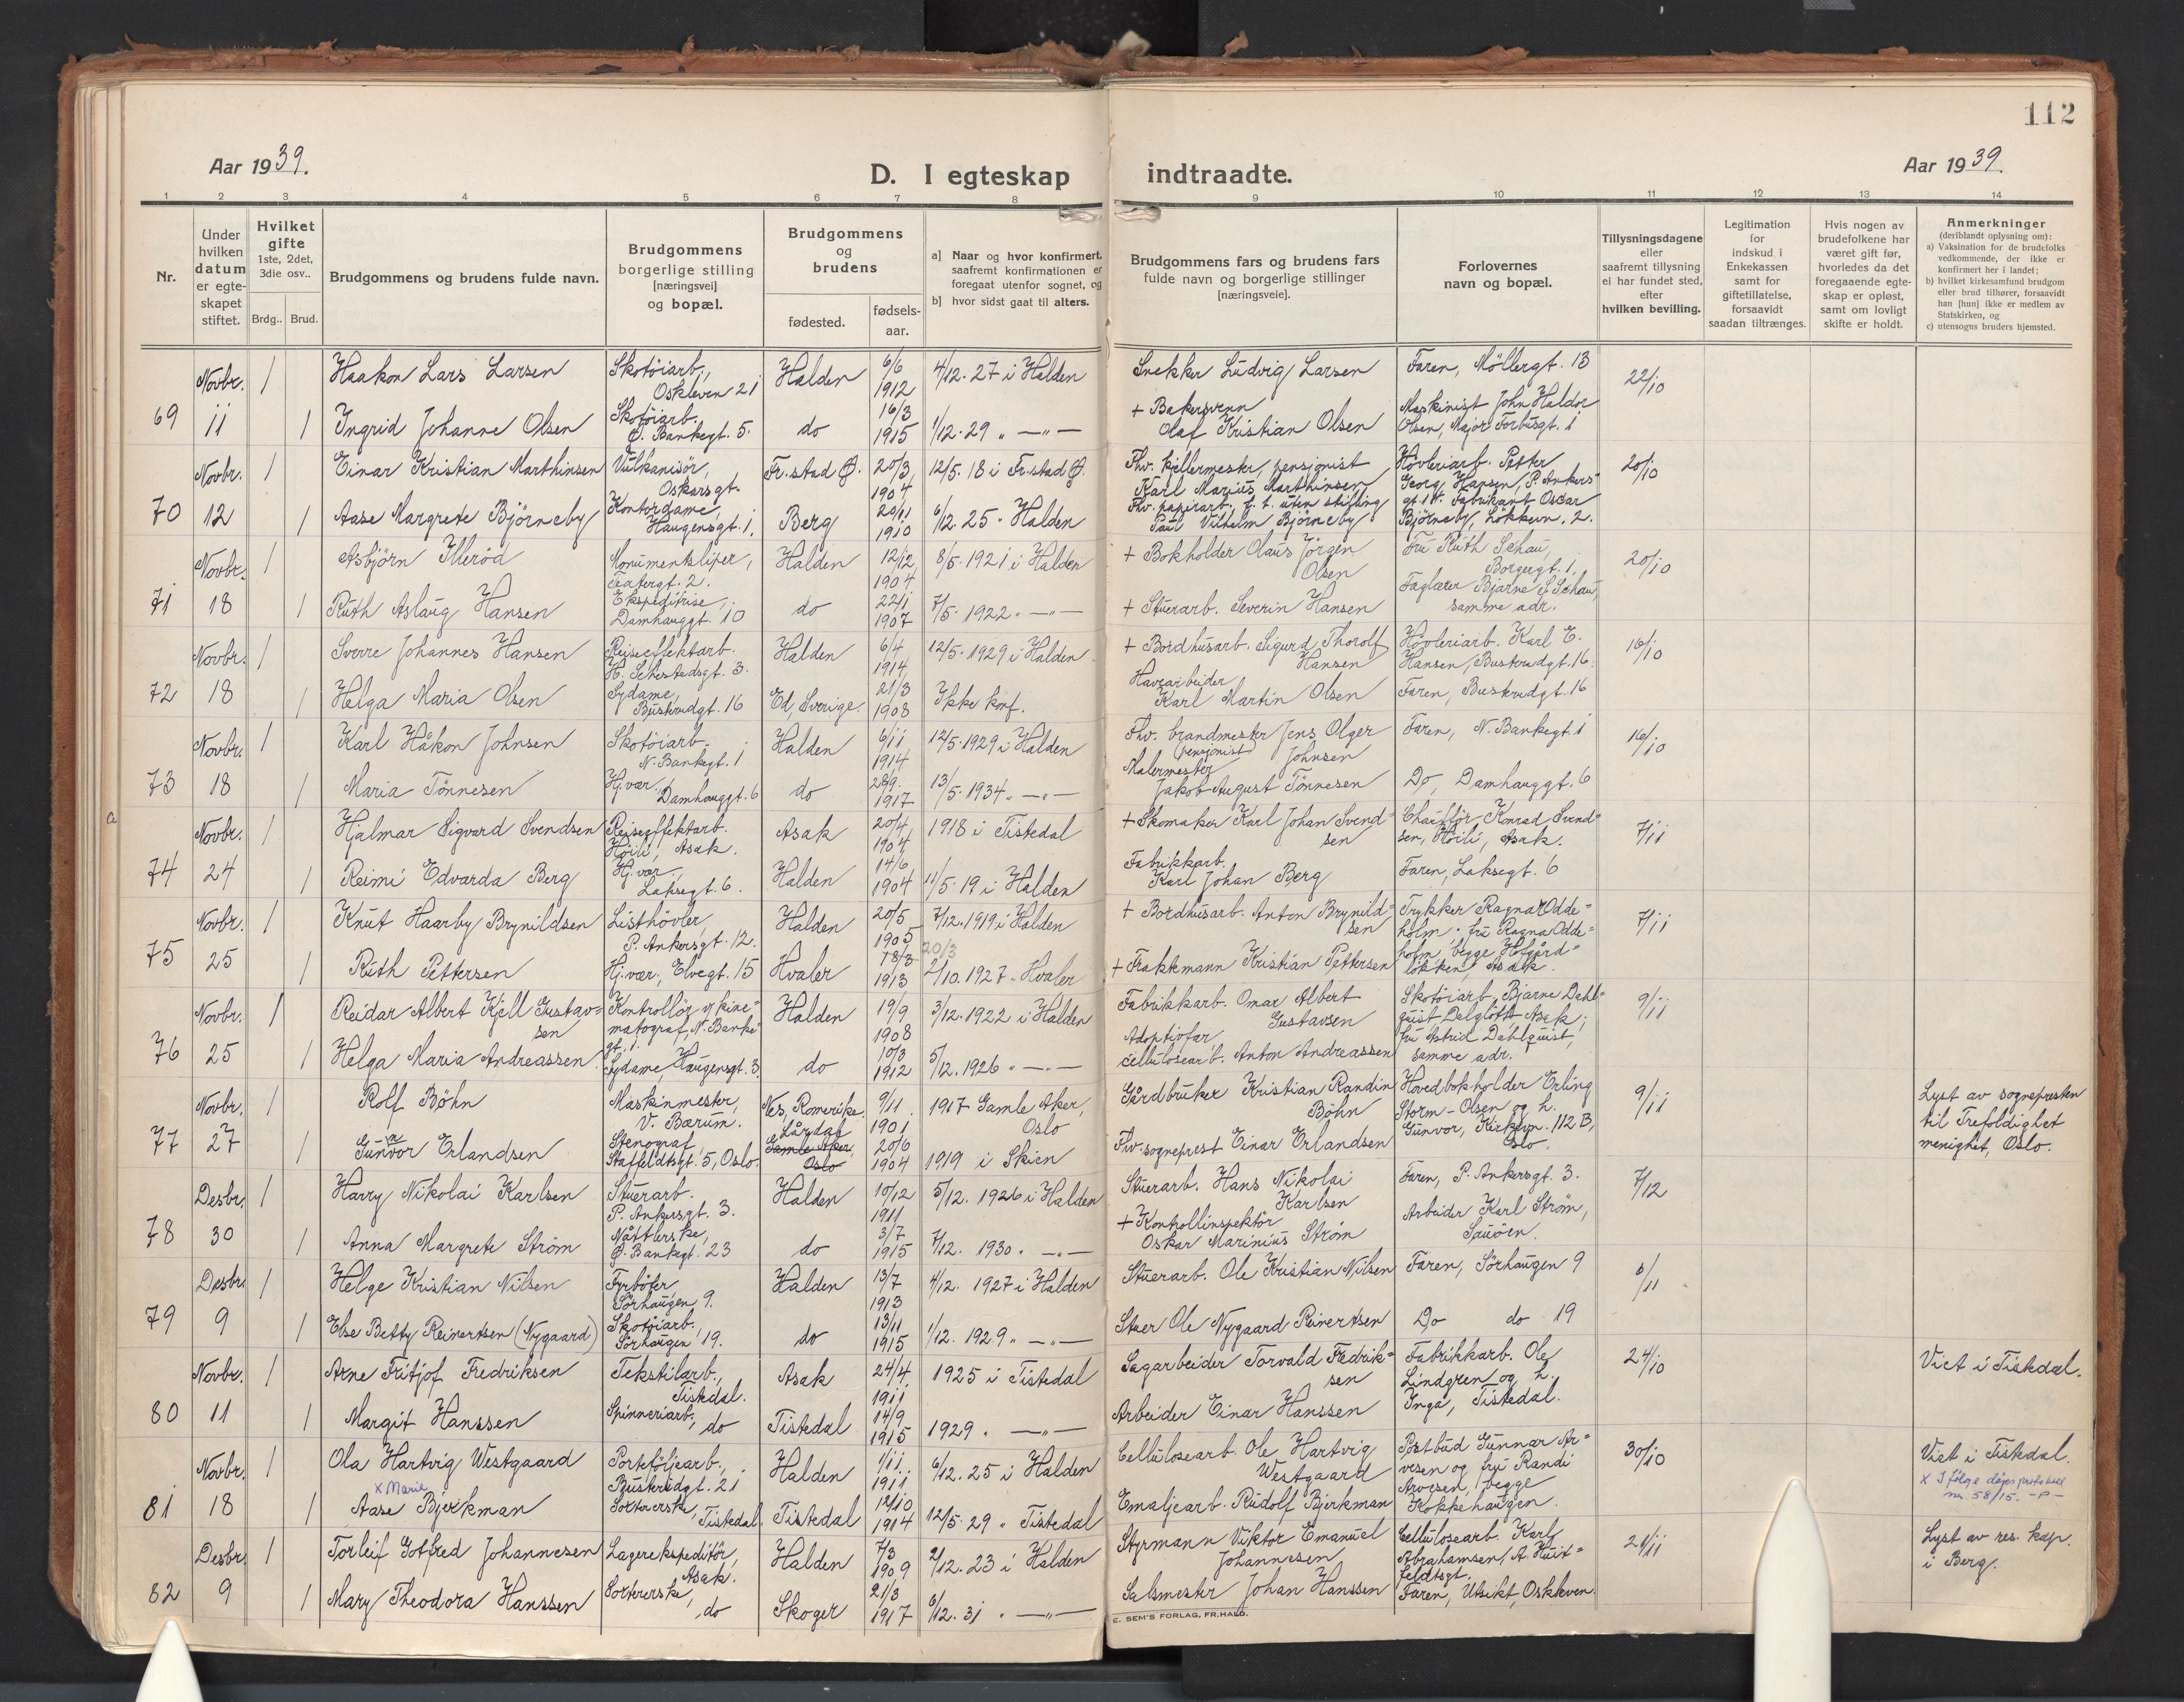 112
Aar 1939.
D. I egteskap indtraadte.
Aar 1939.
1 2 3 4 5 6 7 8 9 10 11 12 13 14
Nr.
Under hvilken datum er egteskapet stiftet.
Hvilket gifte 1ste, 2det, 3die osv..
Brdg.. Brud.
Brudgommens og brudens fulde navn.
Brudgommens borgerlige stilling [næringsvei] og bopæl.
Brudgommens og brudens
fødested.
fødselsaar.
a] Naar og hvor konfirmert, saafremt konfirmationen er foregaat utenfor sognet, og
b] hvor sidst gaat til alters.
Brudgommens fars og brudens fars fulde navn og borgerlige stillinger [næringsveie].
Forlovernes navn og bopæl.
Tillysningsdagene eller saafremt tillysning ei har fundet sted, efter hvilken bevilling.
Legitimation for indskud i Enkekassen samt for giftetillatelse, forsaavidt saadan tiltrænges.
Hvis nogen av brudefolkene har været gift før, hvorledes da det foregaaende egteskap er opløst, samt om lovligt skifte er holdt.
Anmerkninger (deriblandt oplysning om):
a) Vaksination for de brudefolks vedkommende, der ikke er konfirmert her i landet;
b) hvilket kirkesamfund brudgom eller brud tilhører, forsaavidt han [hun] ikke er medlem av Statskirken, og
c) utensogns bruders hjemsted.
Novbr. 1 Haakon Lars Larsen Skotöiarb., Oskleven 21 Halden 6/6 1912 4/12.27 i Halden Snekker Ludvig Larsen Faren, Möllergt. 13 22/10
69 11 1 Ingrid Johanne Olsen Skotöiarb. Ö. Bankegt. 5. do 16/3 1915 1/12.29 " —"— + Bakersvenn Olaf Kristian Olsen Maskinist John Haldor Olsen, Major Forbusgt. 1
Novbr. 1 Einar Kristian Marthinsen Vulkanisör, Oskarsgt. Fr.stad Ø. 20/3 1904 12/5.18 i Fr.stad Ø. Fhv. kjellermester, pensjonist Karl Marius Marthinsen Hövleriarb. Petter Georg Hansen, P. Ankersgt. 20/10
70 12 1 Aase Margrete Björneby Kontordame, Haugensgt. 1. Berg 20/11 1910 6/12.25 - Halden Fhv. papirarb. f. t. uten stilling Paul Vilhelm Björneby Fabrikant Oscar Björneby, Lökkevn. 2.
Novbr. 1 Asbjörn Illeröd Monumentsliper, Teatergt. 2. Halden 12/12 1904 8/5.1921 i Halden + Bokholder Olaus Jörgen Olsen Fru Ruth Schau, Borgergt. 1, 20/10
71 18 1 Ruth Aslaug Hansen Ekspeditrise, Damhauggt. 10 do 22/1 1907 7/5.1922 " —"— + Stuerarb. Severin Hansen Faglærer Bjarne Schau, samme adr.
Novbr. 1 Sverre Johannes Hansen Reiseeffektarb. H. Sehestedsgt. 3. Halden 6/4 1914 12/5.1929 i Halden + Bordhusarb. Sigurd Thorolf Hansen Hövleriarb. Karl E. Hansen, Buskrudgt. 16. 16/10
72 18 1 Helga Maria Olsen Sydame, Buskrudgt. 16 Ed, Sverige. 21/3 1908 Ikke konf. Havearbeider Karl Martin Olsen Faren, Buskrudgt. 16
Novbr. 1 Karl Håkon Johnsen Skotöiarb. N. Bankegt. 1 Halden 6/11 1914 12/5.1929 i Halden Fhv. brandmester Jens Olger (pensjonist) Johnsen Faren, N. Bankegt. 1 16/10
73 18 1 Maria Tönnesen Hj.vær. Damhauggt. 6 do 28/9. 1917 13/5.1934 " —"— Malermester Jakob August Tönnesen Do, Damhauggt. 6
Novbr. 1 Hjalmar Sigvard Svendsen Reiseeffektarb. Höili, Asak. Asak 20/4 1904 1918 i Tistedal + Skomaker Karl Johan Svendsen Chaufför Konrad Svendsen, Höili, Asak. 7/11
74 24 1 Reimi Edvarda Berg Hj. vær. Laksegt. 6. Halden 14/6 1904 11/5.19 i Halden Fabrikkarb. Karl Johan Berg Faren, Laksegt. 6
Novbr. 1 Knut Haarby Brynildsen Listhövler, P. Ankersgt. 12. Halden 20/5 1905 7/12.1919 i Halden + Bordhusarb. Anton Brynildsen Trykker Ragnar Oddeholm, fru Ragna Oddeholm, begge Holgårdlökken, Asak. 7/11
75 25 1 Ruth Pettersen Hj.vær, Elvegt. 15 Hvaler 18/3 1913 20/3 2/10.1927 " Hvaler + Frakkmann Kristian Pettersen
Novbr. 1 Reidar Albert Kjell Gustavsen Kontrollör og kinematograf, N. Bankegt. 1. Halden 19/9 1908 3/12.1922 i Halden Fabrikkarb. Omar Albert Gustavsen Skotöiarb. Bjarne Dahlquist Dalglött Asak; 9/11
76 25 1 Helga Maria Andreassen Sydame, Haugensgt. 3. do 10/3 1912 5/12.1926 " —"— Adoptivfar, cellulosearb. Anton Andreassen fru Astrid Dahlquist, samme adr.
Novbr. 1 Rolf Böhn Maskinmester, V. Bærum. Nes, Romerike. 9/11 1901 1917 Gamle Aker, Oslo Gårdbruker Kristian Randin Böhn Hovedbokholder Erling Storm-Olsen og h. Gunvor, Kirkevn. 112 B, Oslo. 9/11 Lyst av sognepresten til Trefoldighet menighet, Oslo.
77 27 1 Gunvor Erlandsen Stenograf, Staffeldtsgt. 5, Oslo. Lårdal Gamle Aker, Oslo 20/6 1904 1919 i Skien Fhv. sogneprest Einar Erlandsen
Desbr. 1 Harry Nikolai Karlsen Stuerarb. P. Ankersgt. 3. Halden 10/12 1911 5/12. 1926 i Halden Stuerarb. Hans Nikolai Karlsen Faren, P. Ankersgt. 3. 7/12
78 30 1 Anna Margrete Ström Nåtlerske, Ö. Bankegt. 23 do 3/7 1915 7/12. 1930 " —"— + Kontrollinspektör Oskar Marinius Ström Arbeider Karl Ström, Sauöen.
Desbr. 1 Helge Kristian Nilsen Fyrböter Sörhaugen 9. Halden 13/7 1913 4/12. 1927 i Halden Stuerarb. Ole Kristian Nilsen Faren, Sörhaugen 9 6/11
79 9 1 Else Betty Reinertsen (Nygaard) Skotöiarb., Sörhaugen 19. do 13/11 1915 1/12. 1929 " —"— Stuer Ole Nygaard Reinertsen Do do 19
Novbr. 1 Arne Fritjof Fredriksen Tekstilarb., Tistedal. Asak 24/4 1911 1925 i Tistedal Sagarbeider Torvald Fredriksen Fabrikkarb. Ole Lindgren og h. Inga, Tistedal. 24/10 Viet i Tistedal.
80 11 1 Margit Hanssen Spinneriarb., do Tistedal 14/9 1915 1929 " —"— Arbeider Einar Hanssen
Novbr. 1 Ola Hartvig Westgaard Porteföljearb., Buskrudgt. 21 Halden 1/11 1911 6/12.25 i Halden Cellulosearb. Ole Hartvig Westgaard Postbud Gunnar Arvesen og fru Randi Arvesen, begge Kokkehaugen. 30/10 Viet i Tistedal.
x Marie
x I fölge dåpsprotokoll nr. 58/15. -P-
81 18 1 Aase Bjerkman Sorterersk, Tistedal. Tistedal 12/10 1914 12/5.29 " Tistedal Emaljearb. Rudolf Bjerkman
Desbr. 1 Torleif Gotfred Johannesen Lagerekspeditör, Asak. Halden 7/3 1909 2/12.23 i Halden Styrmann Viktor Emanuel Johannesen Cellulosearb. Karl Abrahamsen, A. Huitfeldtsgt. 21/11 Lyst av res. kap. i Berg.
82 9 1 Mary Theodora Hanssen Sorterersk, do Skoger 21/3 1917 6/12.31 " —"— Salsmester Johan Hanssen Faren, Utsikt, Oskleven.
E. SEM'S FORLAG, FR.HALD.